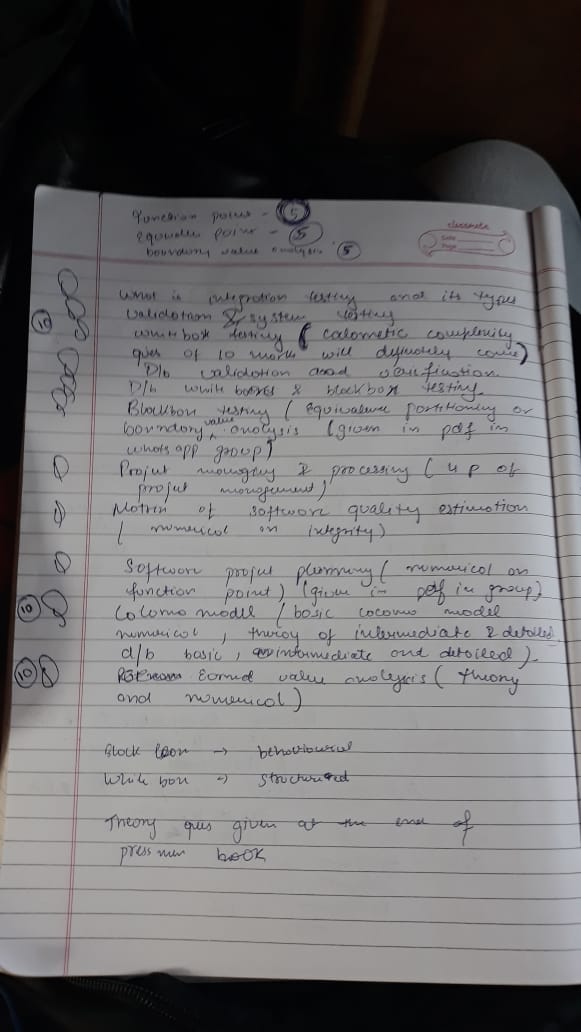 Function point - 5
Equivalen point - 5
boundary value analysis. 5
classmate
Date
Page
What is integration testing and its types
validation & system testing
10 white box testing ( calometic complexity
ques of 10 marks will definately come)
D/b validation and verification
D/b white boxes & blackbox testing
Blackbox testing ( equivalence partitioning or
boundary value analysis (given in pdf in
whatsapp group)
Projet managing & processing ( 4 p of
projet management)
Matrix of software quality estimation
( numerical on integrity)
Software projet planning ( numerical on
function point) (given in pdf in group)
10 Cocomo model ( basic cocomo model
numerical, theory of intermediate & detailed
d/b basic, intermediate and detailed)
10 Earned value analysis ( theory
and numerical)
Black box → behavioural
White box → structured
Theory ques given at the end of
press man book